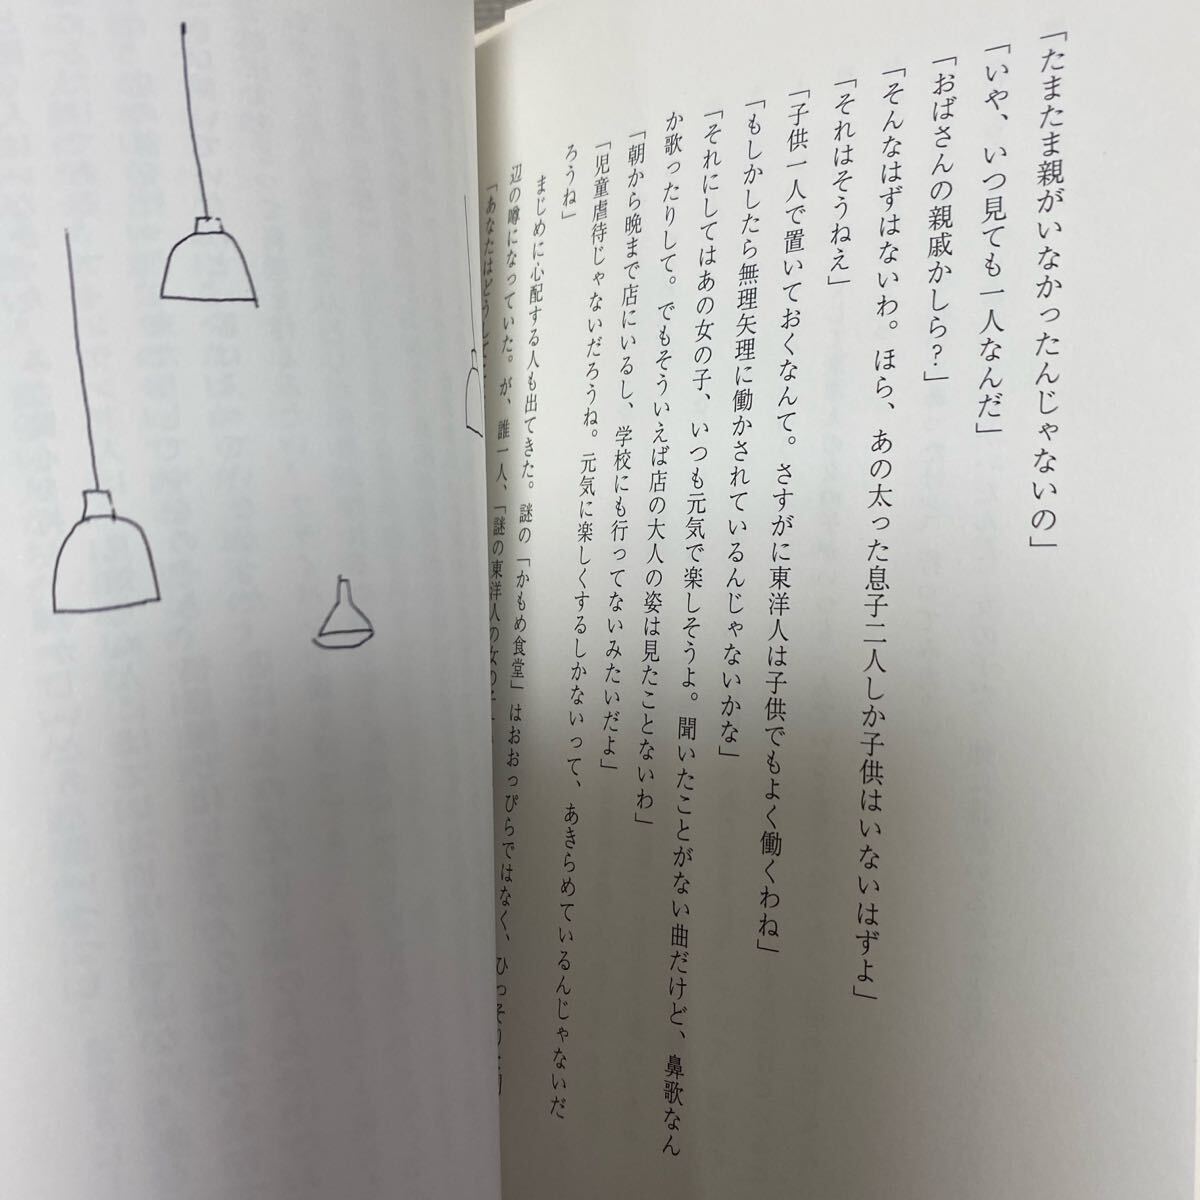 「たまたま親がいなかったんじゃないの」
「いや、いつ見ても一人なんだ」
「おばさんの親戚かしら?」
「そんなはずはないわ。ほら、あの太った息子二人しか子供はいないはずよ」
「それはそうねえ」
「子供一人で置いておくなんて。さすがに東洋人は子供でもよく働くわね」
「もしかしたら無理矢理に働かされているんじゃないかな」
「それにしてはあの女の子、いつも元気で楽しそうよ。聞いたことがない曲だけど、鼻歌なん
か歌ったりして。でもそういえば店の大人の姿は見たことないわ」
「朝から晩まで店にいるし、学校にも行ってないみたいだよ」
「児童虐待じゃないだろうね。元気に楽しくするしかないって、あきらめているんじゃないだ
ろうね」
まじめに心配する人も出てきた。謎の「かもめ食堂」はおおっぴらではなく、ひっそりと
辺の噂になっていた。が、誰一人、「謎の東洋人の女の子
「あなたはどうして